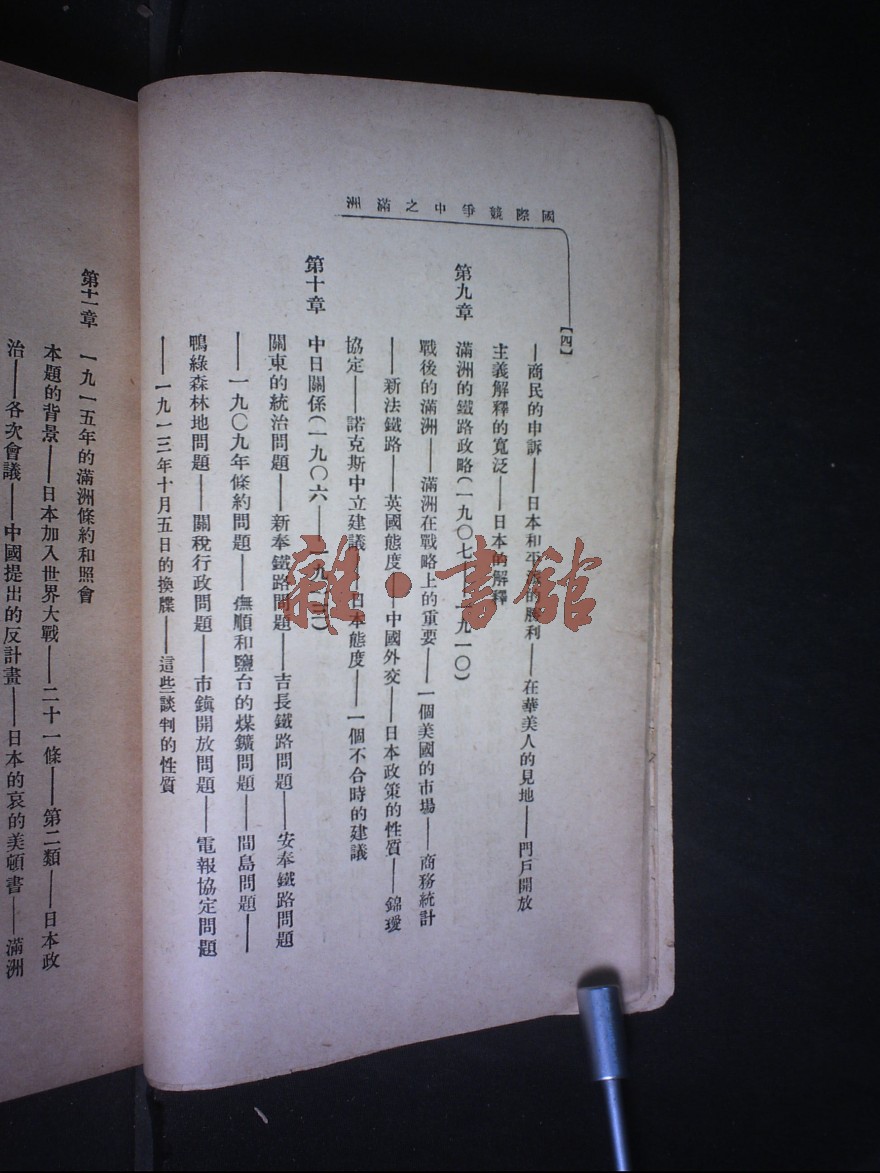 國際競爭中之滿洲
【四】
—商民的申訴——日本和平的勝利——在華美人的見地——門戶開放
主義解釋的寬泛——日本的解釋
第九章 滿洲的鐵路政略(一九〇七 一九一〇)
戰後的滿洲——滿洲在戰略上的重要——一個美國的市場——商務統計
——新法鐵路——英國態度——中國外交——日本政策的性質——錦璦
協定——諾克斯中立建議 日本態度——一個不合時的建議
第十章 中日關係(一九〇六——一九一 )
關東的統治問題——新奉鐵路問題——吉長鐵路問題——安奉鐵路問題
——一九〇九年條約問題——撫順和鹽台的煤鑛問題——間島問題——
鴨綠森林地問題——關稅行政問題——市鎮開放問題——電報協定問題
——一九一三年十月五日的換牒——這些談判的性質
第十一章 一九一五年的滿洲條約和照會
本題的背景——日本加入世界大戰——二十一條——第二類——日本政
治——各次會議——中國提出的反計畫——日本的哀的美頓書——滿洲
雜·書館